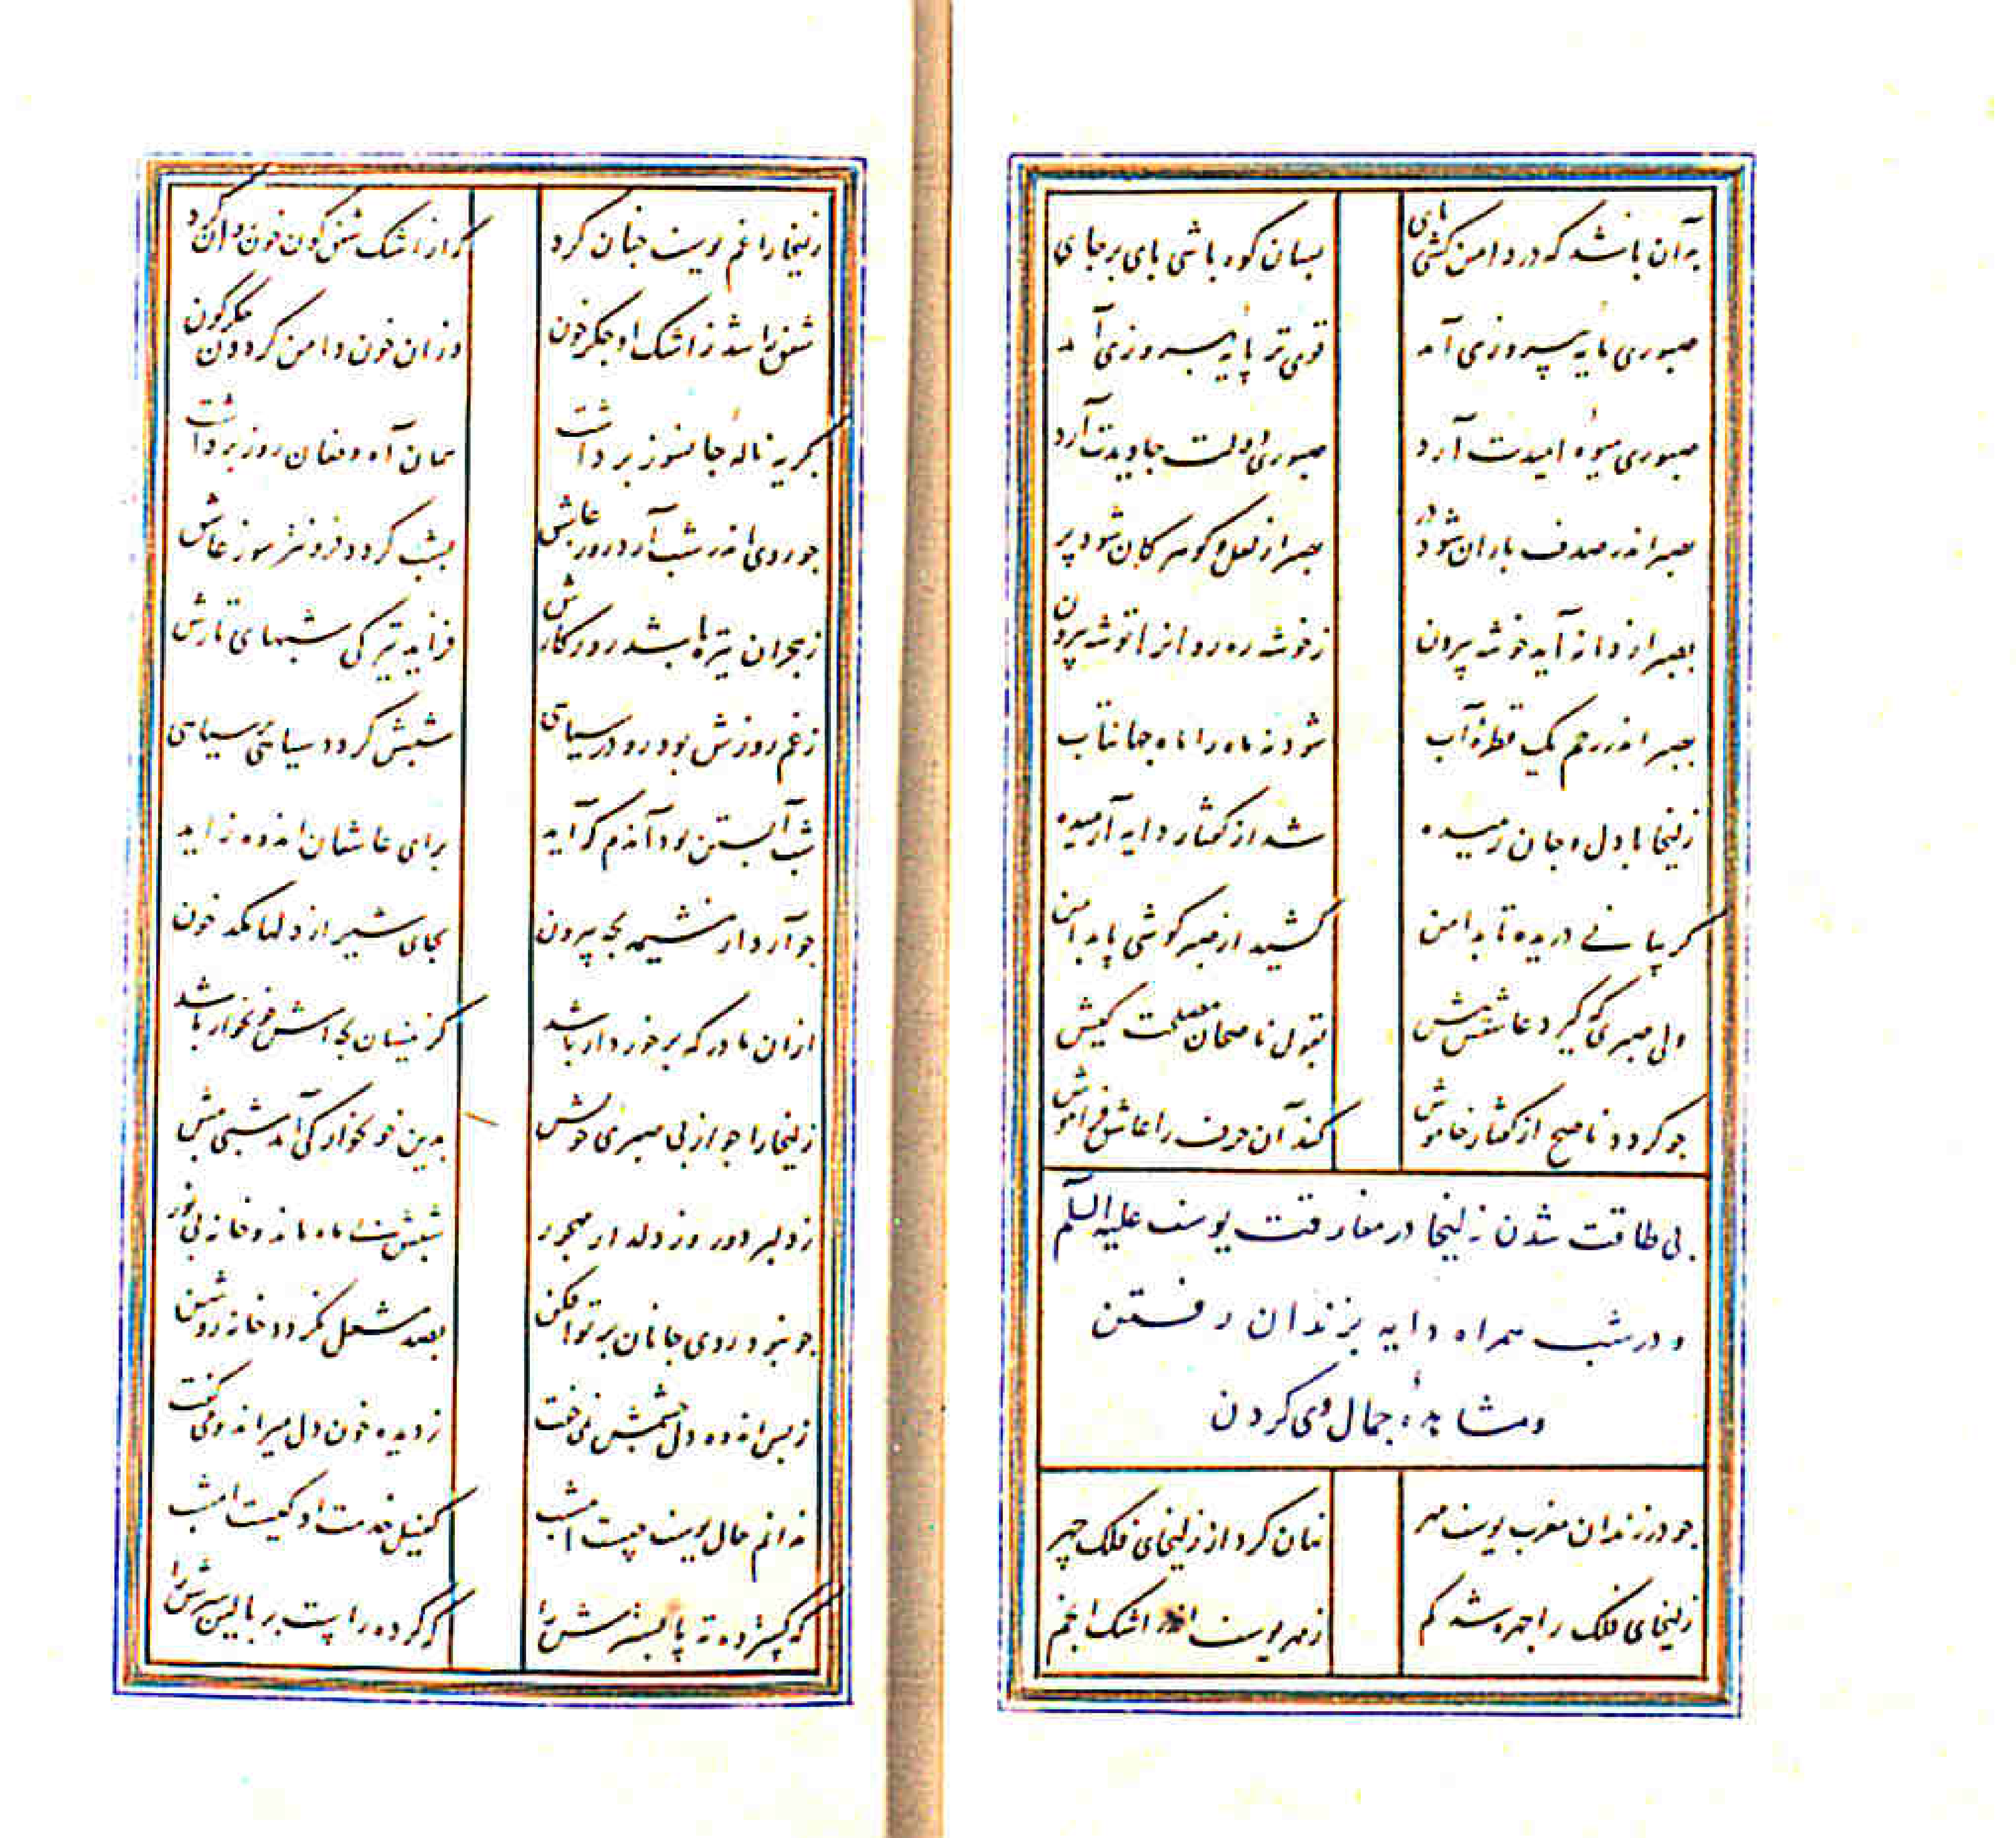 به آن باشد که در دامن کشی پای بسان کوه باشی پای بر جای
صبوری مایه پیروزی آمد قوی تر پایه بهروزی آمد
صبوری میوهٔ امیدت آرد صبوری دولت جاویدت آرد
بصبر اندر صدف باران شود در بصبر از لعل و گوهر کان شود پر
بصبر از دانه آید خوشه بیرون ز خوشه ره روانرا توشه بیرون
بصبر اندر رحم یک قطرهٔ آب شود نه ماه را ماه جهانتاب
زلیخا با دل و جان رمیده شد از گفتار دایه آرمیده
گریبانی دریده تا بدامن کشید از صبر کوشی پا بدامن
ولی صبری که گیرد عاشقش پیش بقول ناصحان مصلحت کیش
جو گردد ناصح از گفتار خاموش کند آن حرف را عاشق فراموش
بی طاقت شدن زلیخا در مفارقت یوسف علیه السلم
و در شب همراه دایه بزندان رفتن
و مشاهدهٔ جمال وی کردن
جو در زندان مغرب یوسف مهر نهان کرد از زلیخای فلک چهر
زلیخای فلک را جهره شد گم ز مهر یوسف اندر اشک انجم
زلیخا را غم یوسف جنان کرد کز اشک شفق گون خون روان کرد
شفق را شد ز اشک او جگر خون وزان خون دامن گردون جگرگون
بگریه نالهٔ جانسوز برداشت همان آه و فغان روز برداشت
جو روی اندر شب آرد روز عاشق بشب گردد فزونتر سوز عاشق
ز هجران تیره باشد روزگارش فزاید تیرگی شبهای تارش
ز غم روزش بود رو در سیاهی شبش گردد سیاهی بر سیاهی
شب آبستن بود آندم که آید برای عاشقان اندوه زاید
جو آرد از مشیمه بچه بیرون بجای شیر از دلها مکد خون
ازان مادر که برخوردار باشد کزینسان بچه‌اش خونخوار باشد
زلیخا را جو از بی صبری خویش بدین خونخوارگی آمد شبی پیش
ز دلبر دور وز دلدار مهجور شبش بی ماه ماند و خانه بی نور
جو نبود روی جانان پرتو افکن بصد مشعل نگردد خانه روشن
ز بس اندوه دل چشمش نمی خفت ز دیده خون دل میراند و می گفت
ندانم حال یوسف چیست امشب کفیل خدمت او کیست امشب
که گسترده ته پا بسترش را که کرده راست بر بالین سرش را